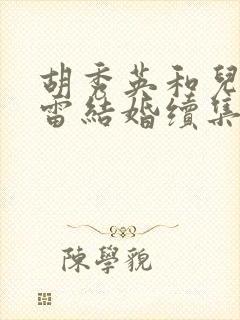 胡秀英和兒
雷結婚續集
陳學貌